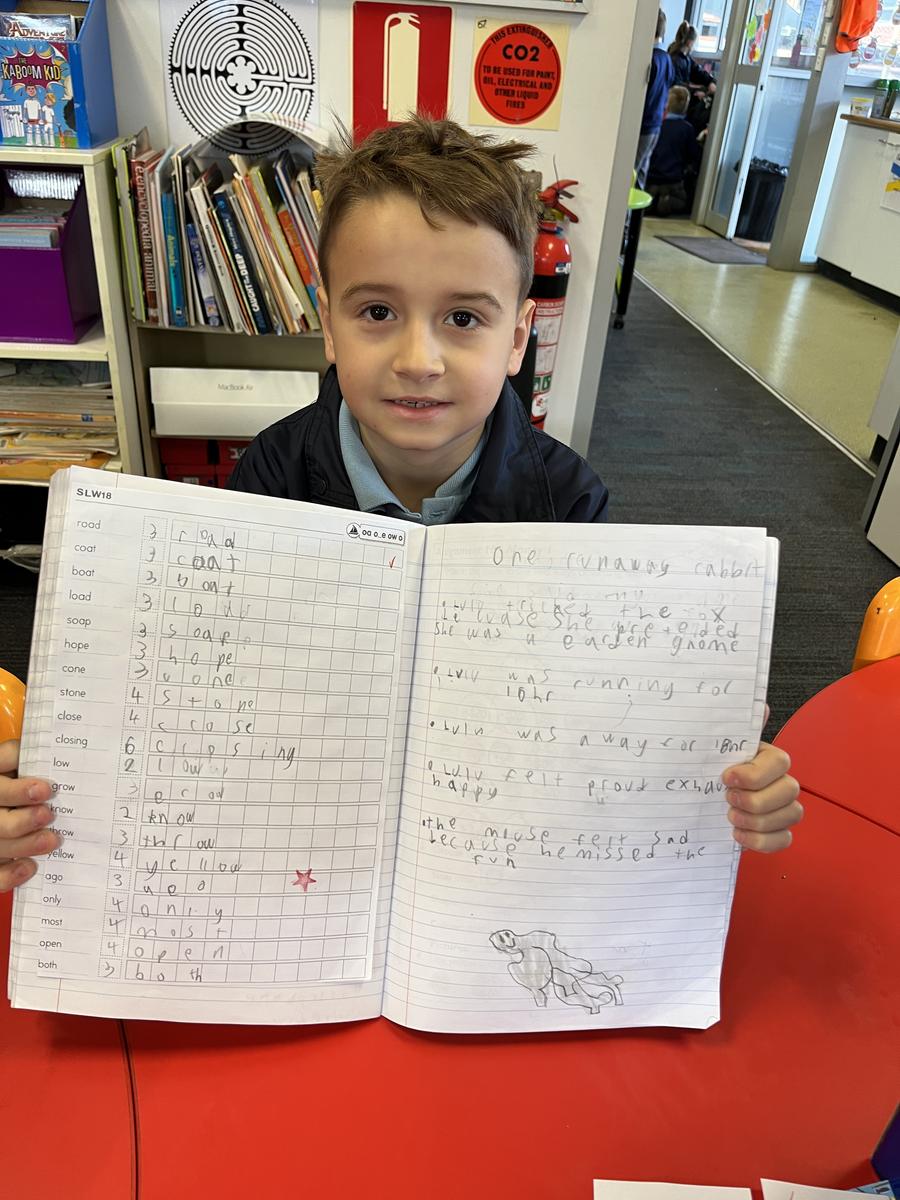 ADVENTURE
THE
KABOOM KID
THIS EXTINGUISHER
CO2
TO BE USED FOR PAINT,
OIL, ELECTRICAL AND
OTHER LIQUID
FIRES
encyclopedia animal
Animals
MacBook Air
SLW18
oa o_e ow o
road 3 r oa d
coat 3 c oa t
boat 3 b oa t
load 3 l oa d
soap 3 s oa p
hope 3 h o pe
cone 3 c o ne
stone 4 s t o ne
close 4 c l o se
closing 6 c l o s ing
low 2 l ow
grow 3 g r ow
know 2 kn ow
throw 3 th r ow
yellow 4 y e ll ow
ago 3 a g o
only 4 o n l y
most 4 m o s t
open 4 o p e n
both 3 b o th
One runaway rabbit
• Lulu tricked the fox
she pre teided
She was a garden gnome
• Lulu was running for
10hr
• Lulu was away for 18hr
• Lulu felt proud exhaus
happy
• the mouse felt sad
because he missed the
fun